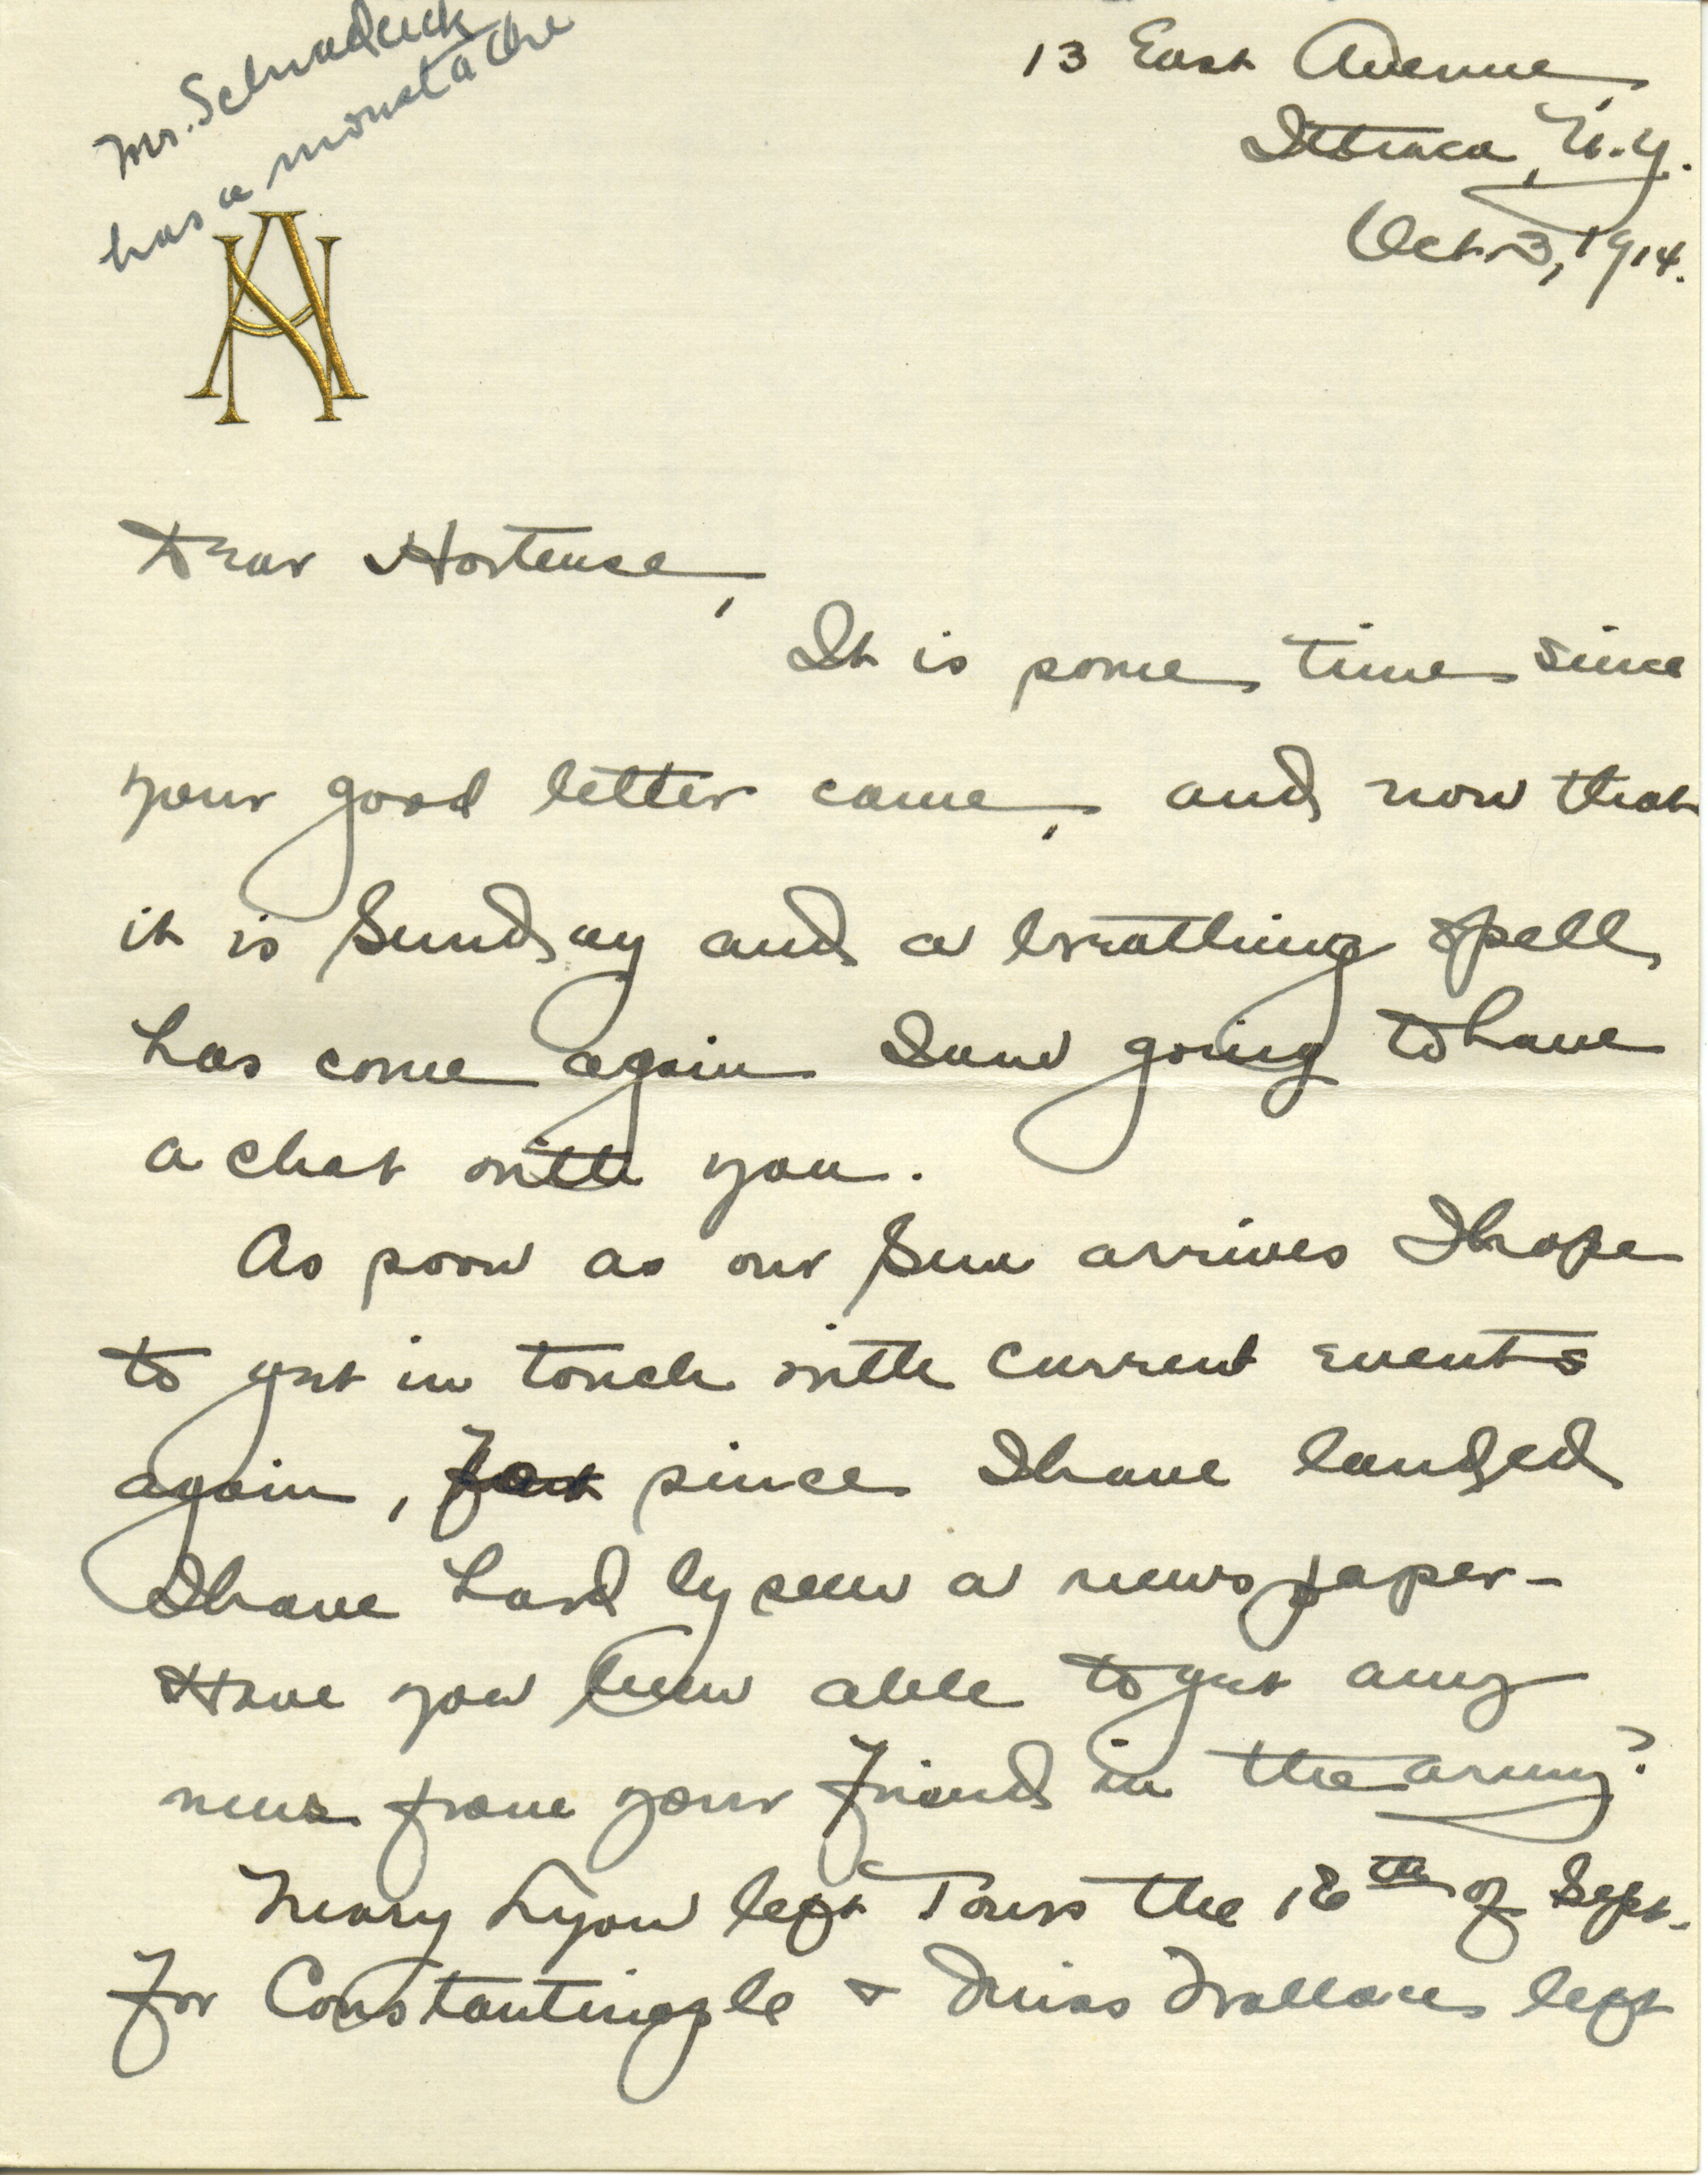 Mr. Schradieck
has a moustache
13 East Avenue,
Ithaca, N.Y.
Oct. 3, 1914.
Dear Hortense,
It is some time since
your good letter came, and now that
it is Sunday and a breathing spell
has come again I am going to have
a chat with you.
As soon as our Sun arrives I hope
to get in touch with current events
again, for since I have landed
I have hardly seen a newspaper-
Have you been able to get any
news from your friend in the army?
Mary Lyon left Tours the 18th of Sept.
for Constantinople & Miss Wallace left